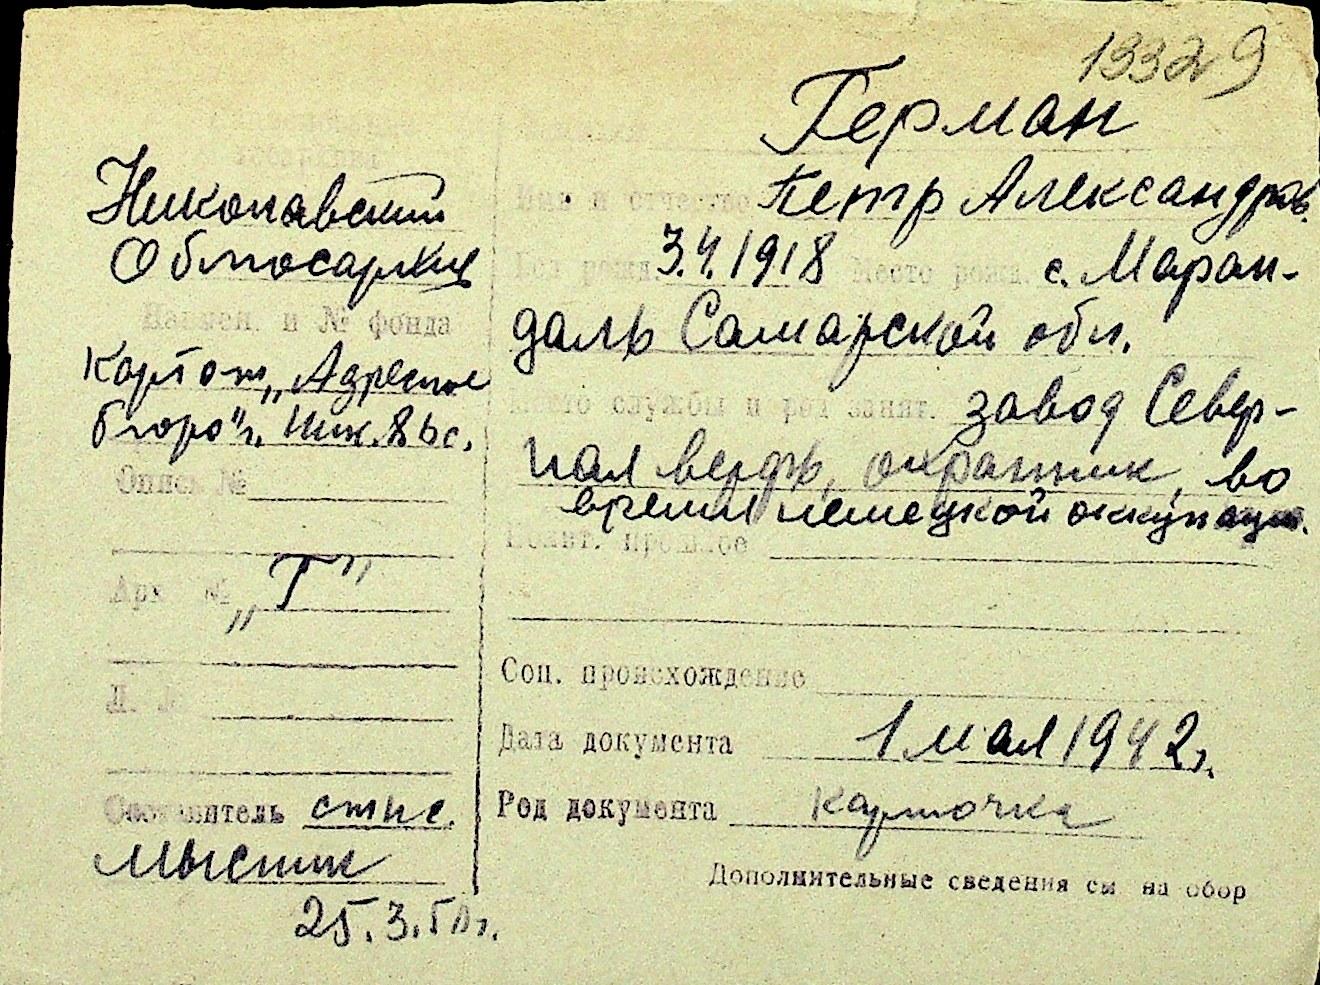 19329
Герман
Николавский
Облгосархив
Имя и отчество Петр Александров.
Год рожд. 3.4.1918 Место рожд. с. Мариен-
Наимен. и № фонда
даль Самарской обл.
Картот. „Адресное
бюро" г. Ник.
Место службы и род занят. завод Север-
ная верфь, охранник, во
время немецкой оккупации.
Опись №
Полит. прошлое
Арх. № „Г"
Соц. происхождение
Д. №
Дата документа 1 мая 1942 г.
Составитель
Род документа карточка
25.3.50 г.
Дополнительные сведения см на обор